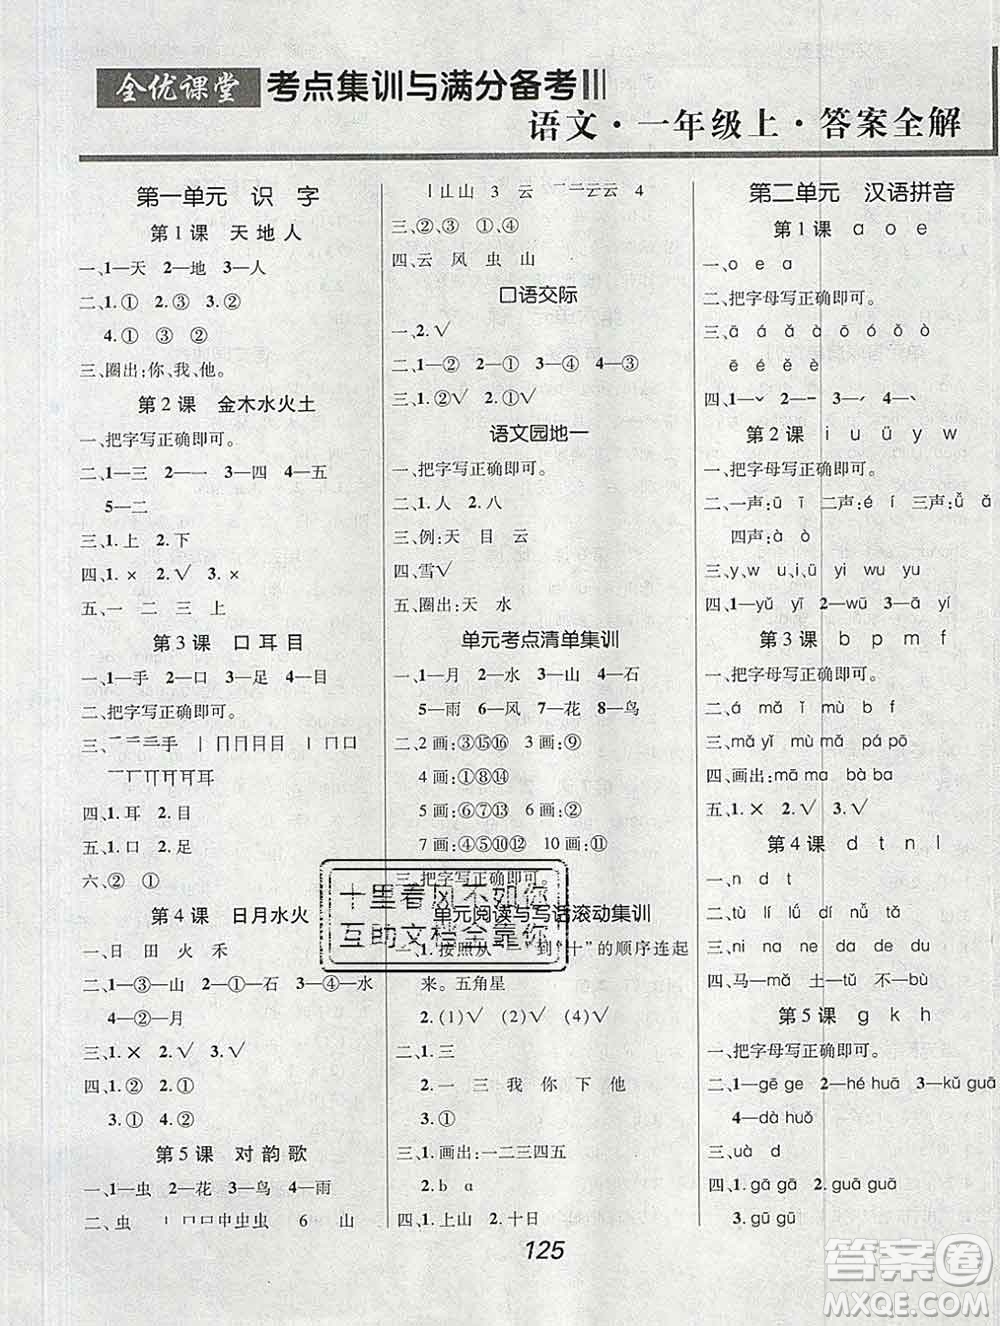 全优课堂 考点集训与满分备考
语文·一年级上·答案全解
第一单元 识 字
第1课 天地人
一、1—天 2—地 3—人
二、1.① 2.③ 3.②
4.① ③ ②
三、圈出:你、我、他。
第2课 金木水火土
一、把字写正确即可。
二、1—三 2—一 3—四 4—五
5—二
三、1.上 2.下
四、1.× 2.√ 3.×
五、一 二 三 上
第3课 口耳目
一、1—手 2—口 3—足 4—目
二、把字写正确即可。
四、1.耳 2.目
五、1.口 2.足
六、② ①
第4课 日月水火
一、日 田 火 禾
二、1—③—山 2—①—石 3—④—水
4—②—月
三、1.× 2.√ 3.√
四、1.② 2.①
3.① 4.②
第5课 对韵歌
一、1—虫 2—花 3—鸟 4—雨
二、虫 丨 口 口 中 虫 虫 6 山
丨 山 山 3 云 一 二 云 云 4
三、②、③ ①、④
四、云 风 虫 山
口语交际
一、2.√
二、1—④ 2—① 3—② 4—③
三、1.√ 2.①√
语文园地一
一、把字写正确即可。
二、1.人 2.八
三、例:天 目 云
四、雪√
五、圈出:天 水
单元考点清单集训
一、1—月 2—水 3—山 4—石
5—雨 6—风 7—花 8—鸟
二、2画:③⑮⑯ 3画:⑨
4画:①⑧⑭
5画:⑥⑦⑬ 6画:②
7画:④⑤⑩⑪⑫ 10画:⑰
三、把字写正确即可。
单元阅读与写话滚动集训
一、1.按照从“一”到“十”的顺序连起
来。五角星
2.(1)√ (2)√ (4)√
二、1.三
2.一 三 我 你 下 他
3.①
三、1.画出:一二三四五
2.b ɑ
四、1.上山 2.十日
第二单元 汉语拼音
第1课 ɑ o e
一、o e ɑ
二、把字母写正确即可。
三、ā á ǎ à ō ó ǒ ò
ē é ě è
四、1—ˇ 2—ˉ 3—ˊ 4—ˋ
第2课 i u ü y w
一、把字母写正确即可。
二、一声:ū ī 二声:é í 三声:ǚ ǎ
四声:à ò
三、y、w u、i、ü yi wu yu
四、1—yǔ yī 2—wū 3—ā yí
第3课 b p m f
一、把字母写正确即可。
二、á mā fǎ pà
三、mǎ yǐ mù mǎ pá pō
四、画出:mā ma bà ba
五、1.× 2.√ 3.√
第4课 d t n l
二、tú lā dú nǚ là
三、ni na ne da de du
四、马—mǎ 土—tǔ 不—bù
第5课 g k h
一、把字母写正确即可。
二、1—gē ge 2—hé huā 3—kǔ guā
4—dà huǒ
三、uà d
四、1.gā gā 2.guā guā
3.gū gū
十里春风不如你
互助文档全靠你
125
答案圈
MXQE.COM